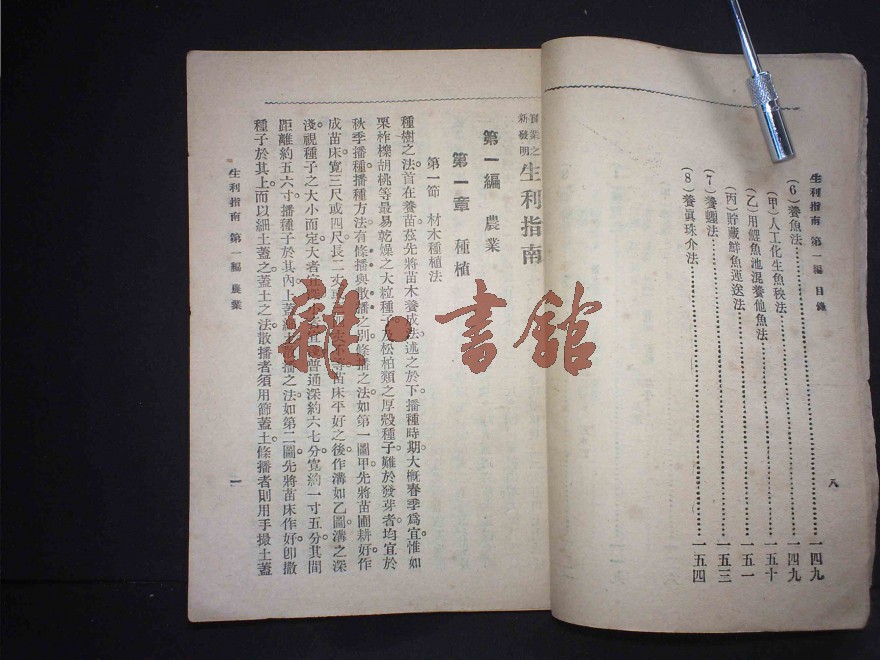 生利指南 第一編 目錄 八
(6)養魚法……一四九
(甲)人工化生魚秧法……一四九
(乙)用鯉魚池混養他魚法……一五十
(丙)貯藏鮮魚運送法……一五一
(7)養鱷法……一五三
(8)養眞珠介法……一五四
實業之新發明 生利指南
第一編 農業
第一章 種植
第一節 材木種植法
種樹之法。首在養苗。茲先將苗木養成法。述之於下。播種時期。大概春季爲宜。惟如
栗柞櫟胡桃等最易乾燥之大粒種子。及松柏類之厚殼種子。難於發芽者。均宜於
秋季播種。播種方法。有條播與散播之別。條播之法。如第一圖甲。先將苗圃耕好。作
成苗床。寬三尺或四尺。長二丈 不等。苗床平好之後。作溝如乙圖。溝之深
淺。視種子之大小而定。大者宜 普通深約六七分。寬約一寸五分。其間
距離約五六寸。播種子於其內。上蓋 散播之法。如第二圖。先將苗床作好。卽撒
種子於其上。而以細土蓋之。蓋土之法。散播者須用篩蓋土。條播者則用手撮土蓋
生利指南 第一編 農業 一
雜·書館